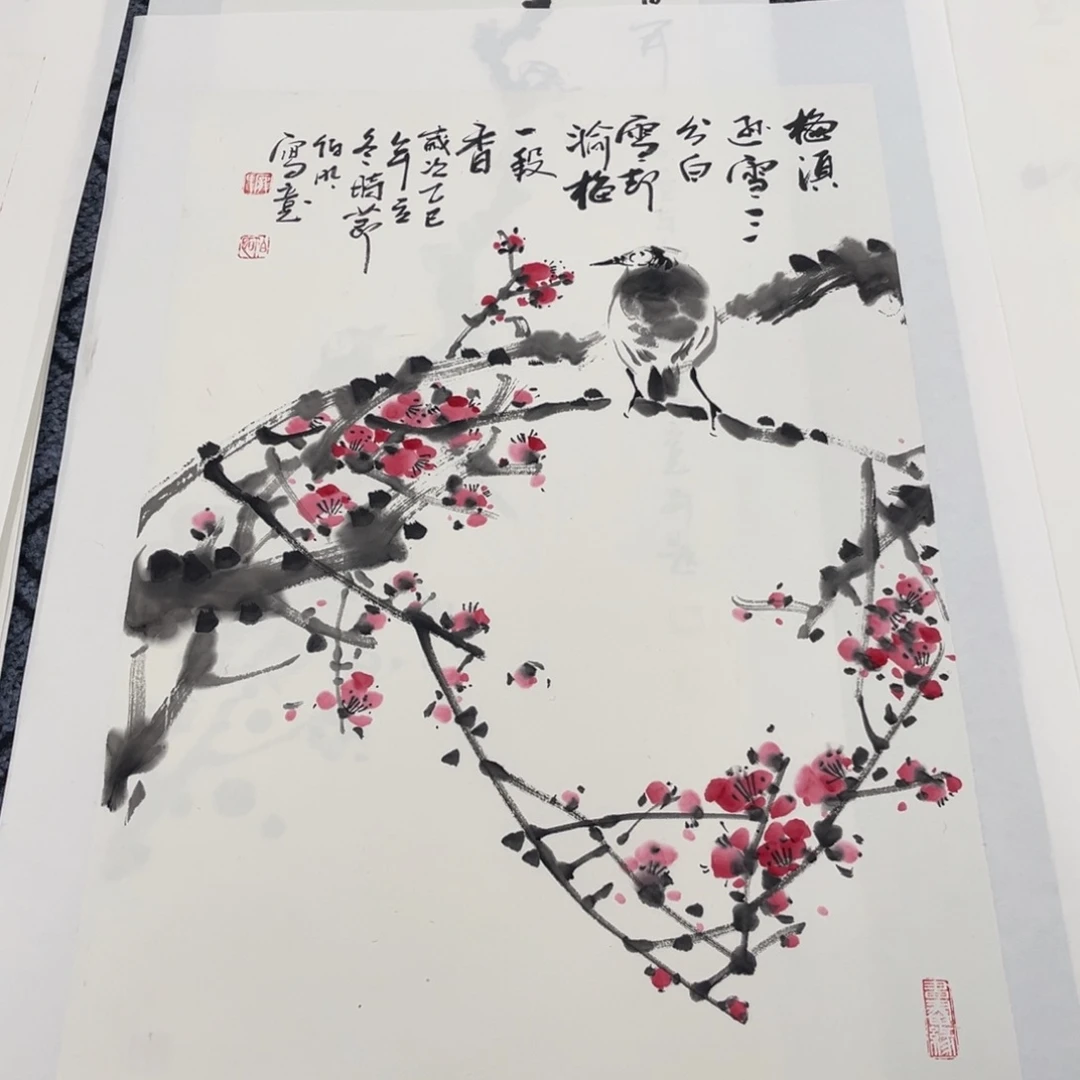 梅須
逊雪三
分白
雪却
輸梅
一段
香
歲次乙巳
年立
冬時節
伯
寫意